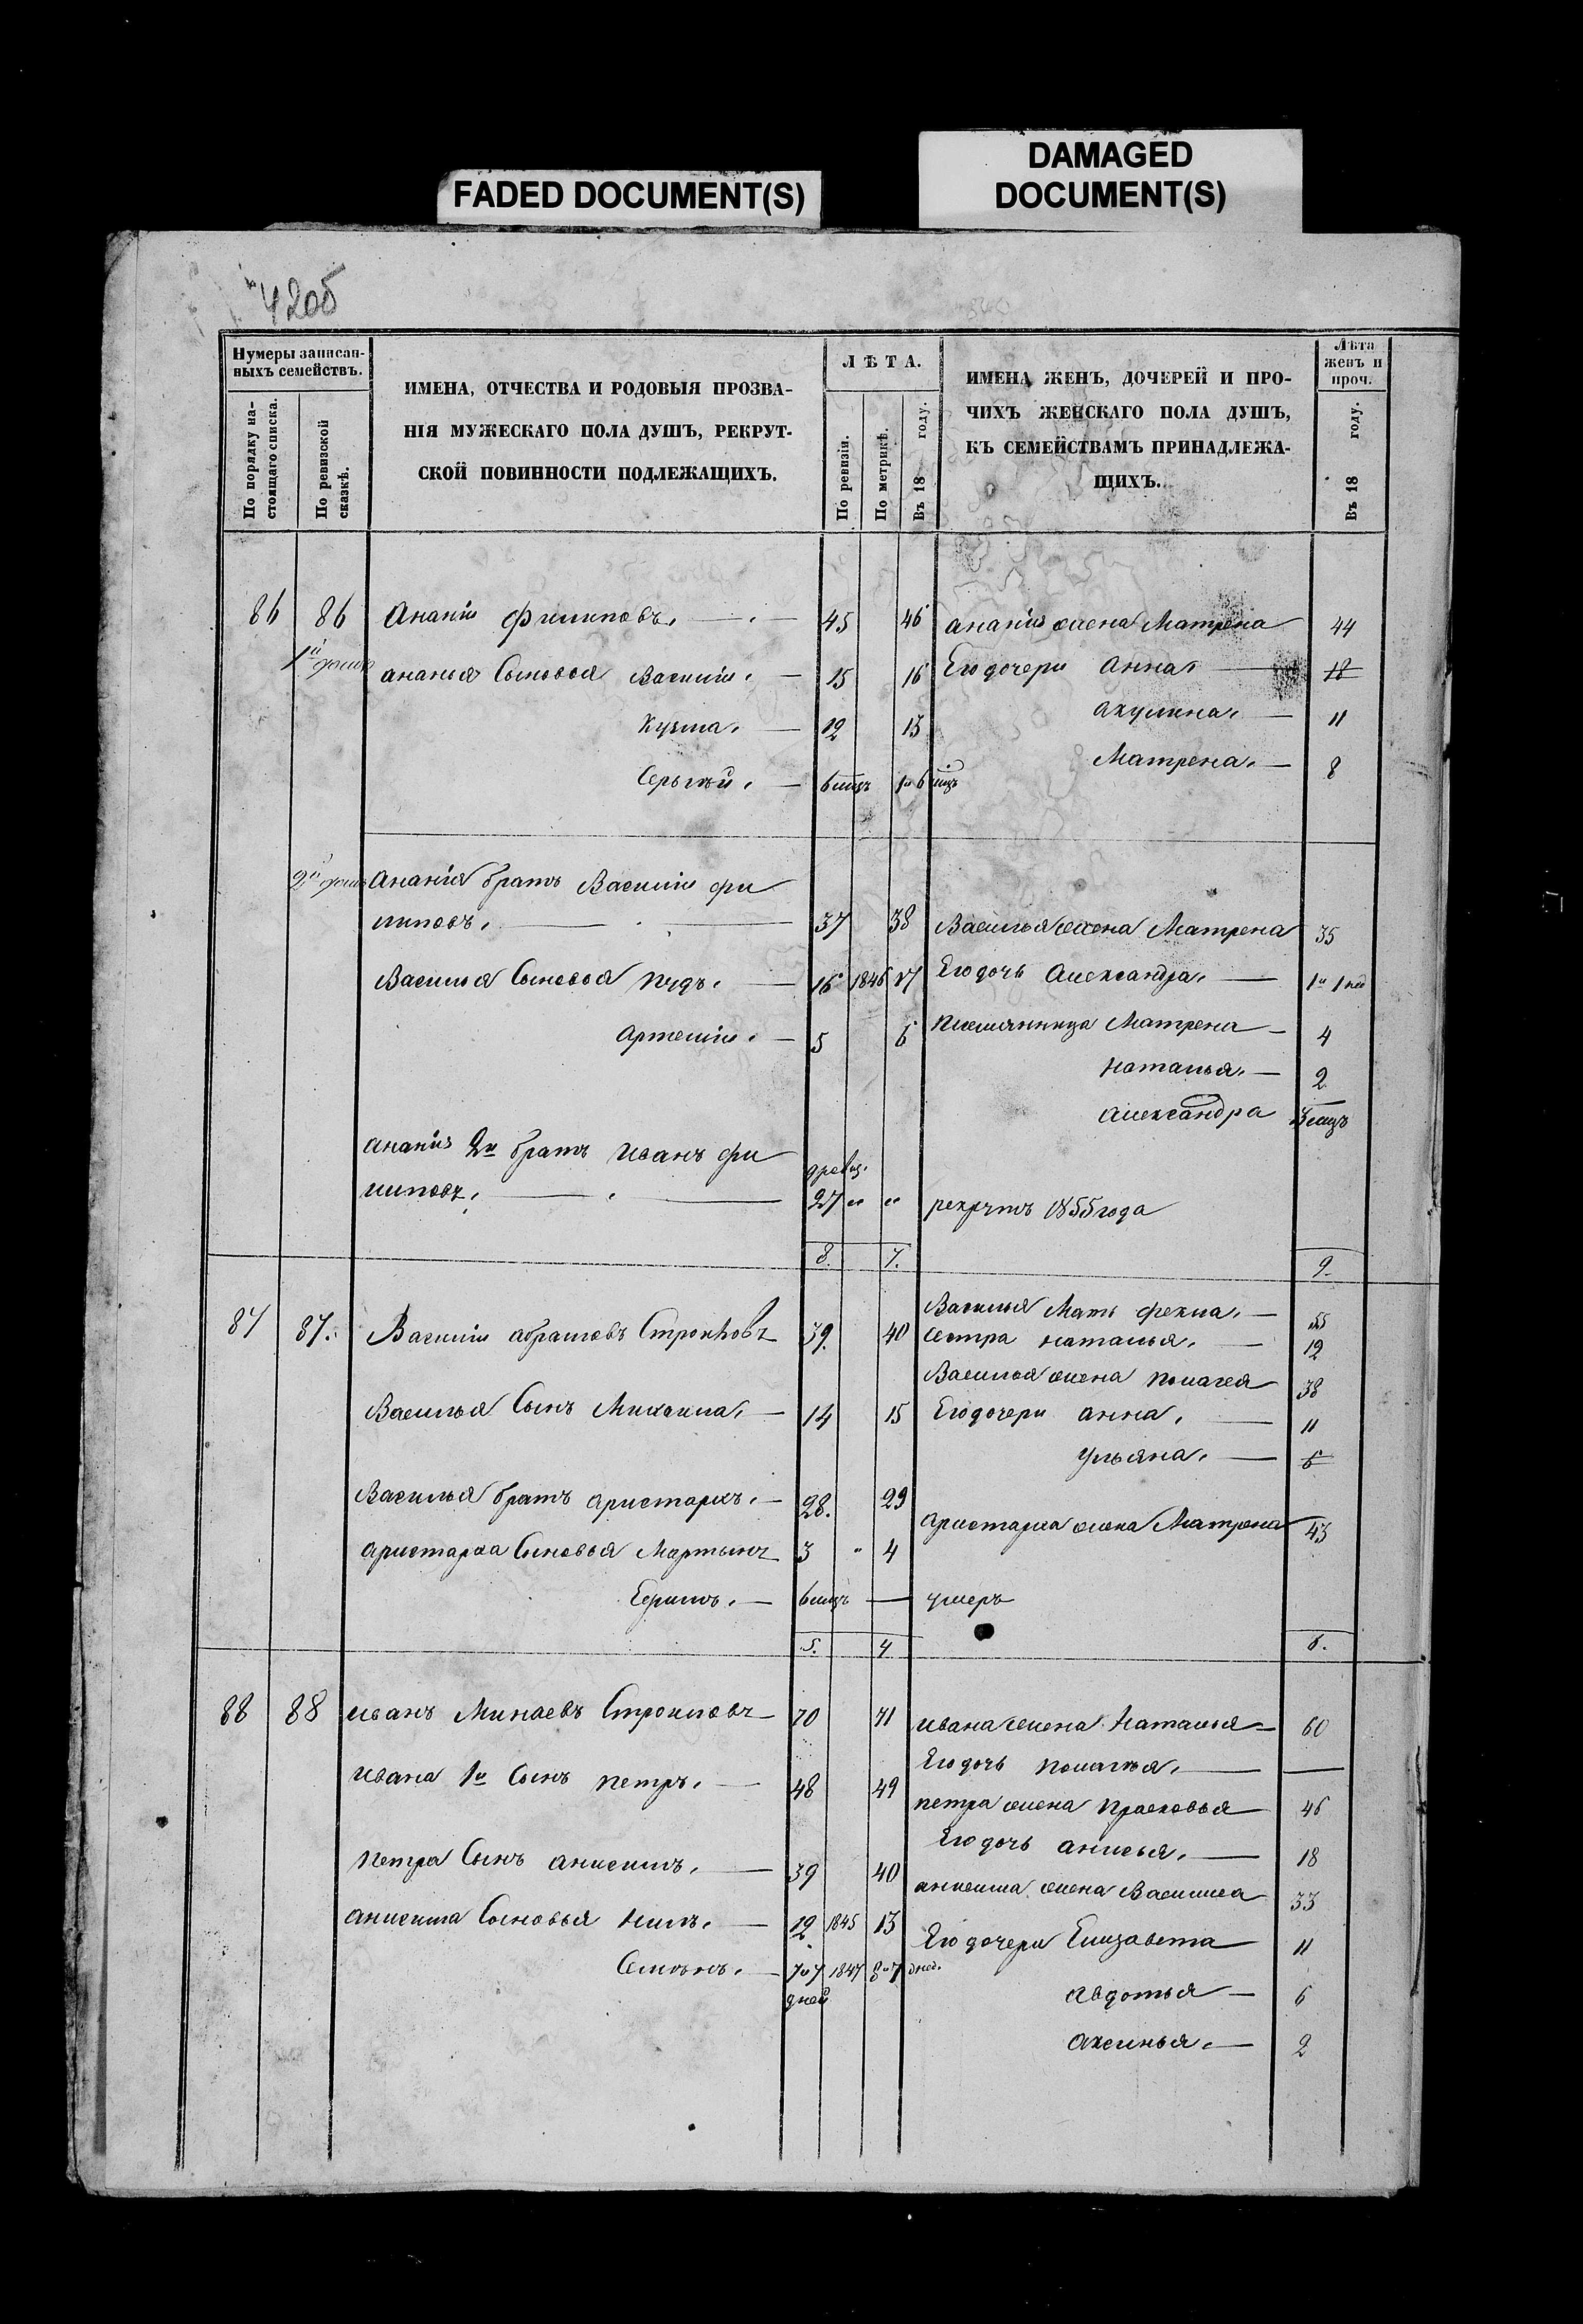 FADED DOCUMENT(S)
DAMAGED
DOCUMENT(S)
420б
Нумеры записан-
ныхъ семействъ.
По порядку на-
стоящаго списка.
По ревизской
сказкѣ.
ИМЕНА, ОТЧЕСТВА И РОДОВЫЯ ПРОЗВА-
НІЯ МУЖЕСКАГО ПОЛА ДУШЪ, РЕКРУТ-
СКОЙ ПОВИННОСТИ ПОДЛЕЖАЩИХЪ.
ЛѢТА.
По ревизіи.
По метрикѣ.
Въ 18 году.
ИМЕНА ЖЕНЪ, ДОЧЕРЕЙ И ПРО-
ЧИХЪ ЖЕНСКАГО ПОЛА ДУШЪ,
КЪ СЕМЕЙСТВАМЪ ПРИНАДЛЕЖА-
ЩИХЪ.
Лѣта
женъ и
проч.
Въ 18 году.
86 86 Ананiи Филиповъ. 45 46 Ананiя жена Матрена 44
1й Ананья Сыновья Василiи. 15 16 Его дочери Анна 18
Кузма. 12 13 Акулина. 11
Сергѣй. 6 мцъ 1 и 6 мцъ Матрена. 8
2й Ананiя братъ Василiи Фи
липовъ. 37 38 Василья жена Матрена 35
Василья Сыновья Пудъ. 16 1846 17 Его дочь Александра. 1 и 1 нед
Артемiи. 5 6 племянница Матрена 4
Наталья. 2
Александра мцъ
Ананiя 2й братъ Иванъ Фи
липовъ. 27 " " рекрутъ 1855 года
8. 7. 9.
87 87. Василiи Абрамовъ 39. 40 Василья Мать Фекла. 55
Сестра Наталья. 19
Василья жена Пелагея 38
Василья Сынъ Михаила. 14 15 Его дочери Анна. 11
Ульяна. 6
Василья братъ Аристархъ. 28. 29 Аристарха жена Матрена 43
Аристарха Сыновья Мартынъ 3 " 4
Ефимъ. 6 мцъ умеръ
5. 4 6.
88 88 Иванъ Минаевъ Строиловъ 70 71 Ивана жена Наталья 60
Его дочь Пелагея.
Ивана 1й Сынъ Петръ. 48 49 Петра жена Прасковья 46
Его дочь Анисья. 18
Петра Сынъ Анисимъ. 39 40 Анисима жена Василиса 33
Анисима Сыновья Нилъ. 12 1845 13 Его дочери Елизавета 11
Семенъ. 7 и 7 дней 1847 8 и 7 дней. Авдотья 6
Аксинья. 2